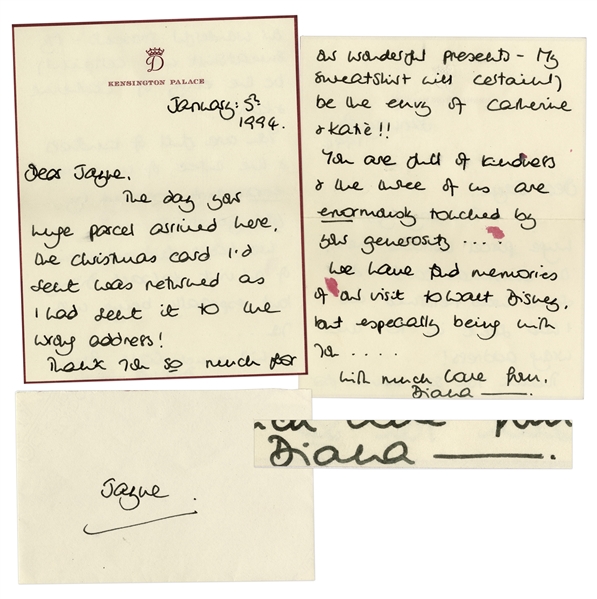 D
KENSINGTON PALACE
January: 5th
1994.
Dear Jayne,
The day your
huge parcel arrived here,
the christmas card I'd
sent was returned as
I had sent it to the
wrong address!
Thank you so much for
our wonderful presents - My
sweatshirt will certainly
be the envy of Catherine
& Katie!!
You are full of kindness
& the three of us are
enormously touched by
your generosity ....
We have fond memories
of our visit to Walt Disney,
but especially being with
you .....
with much love from,
Diana
Jayne
much love from
Diana